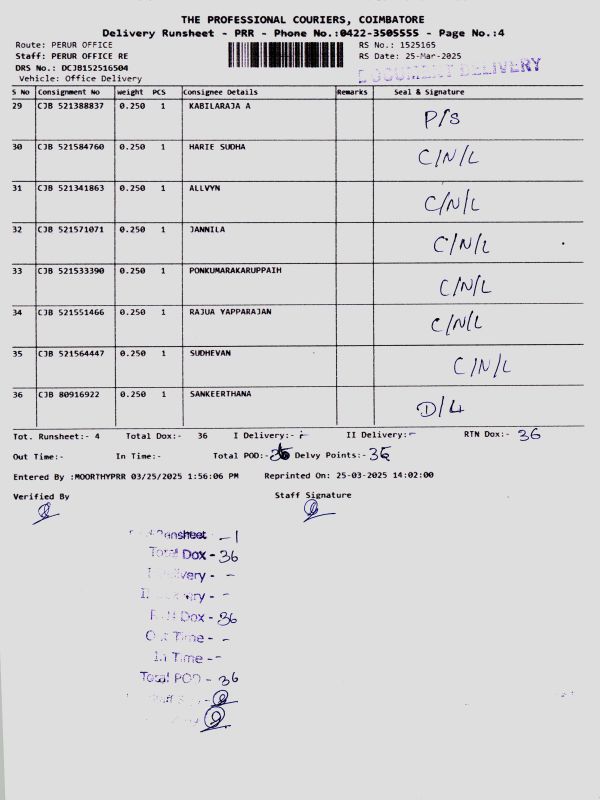 THE PROFESSIONAL COURIERS, COIMBATORE
Delivery Runsheet - PRR - Phone No.:0422-3505555 - Page No.:4
Route: PERUR OFFICE RS No.: 1525165
Staff: PERUR OFFICE RE RS Date: 25-Mar-2025
DRS No.: DCJB152516504
DOCUMENT DELIVERY
Vehicle: Office Delivery
S No Consignment No Weight PCS Consignee Details Remarks Seal & Signature
29 CJB 521388837 0.250 1 KABILARAJA A P/S
30 CJB 521584760 0.250 1 HARIE SUDHA C/N/L
31 CJB 521341863 0.250 1 ALLVYN C/N/L
32 CJB 521571071 0.250 1 JANNILA C/N/L
33 CJB 521533390 0.250 1 PONKUMARAKARUPPAIH C/N/L
34 CJB 521551466 0.250 1 RAJUA YAPPARAJAN C/N/L
35 CJB 521564447 0.250 1 SUDHEVAN C/N/L
36 CJB 80916922 0.250 1 SANKEERTHANA D/L
Tot. Runsheet:- 4 Total Dox:- 36 I Delivery:- - II Delivery:- - RTN Dox:- 36
Out Time:- In Time:- Total POD:- Delvy Points:- 36
Entered By :MOORTHYPRR 03/25/2025 1:56:06 PM Reprinted On: 25-03-2025 14:02:00
Verified By Staff Signature
Runsheet - 1
Total Dox - 36
I Delivery - -
II Delivery - -
RTN Dox - 36
Out Time - -
In Time - -
Total POD - 36